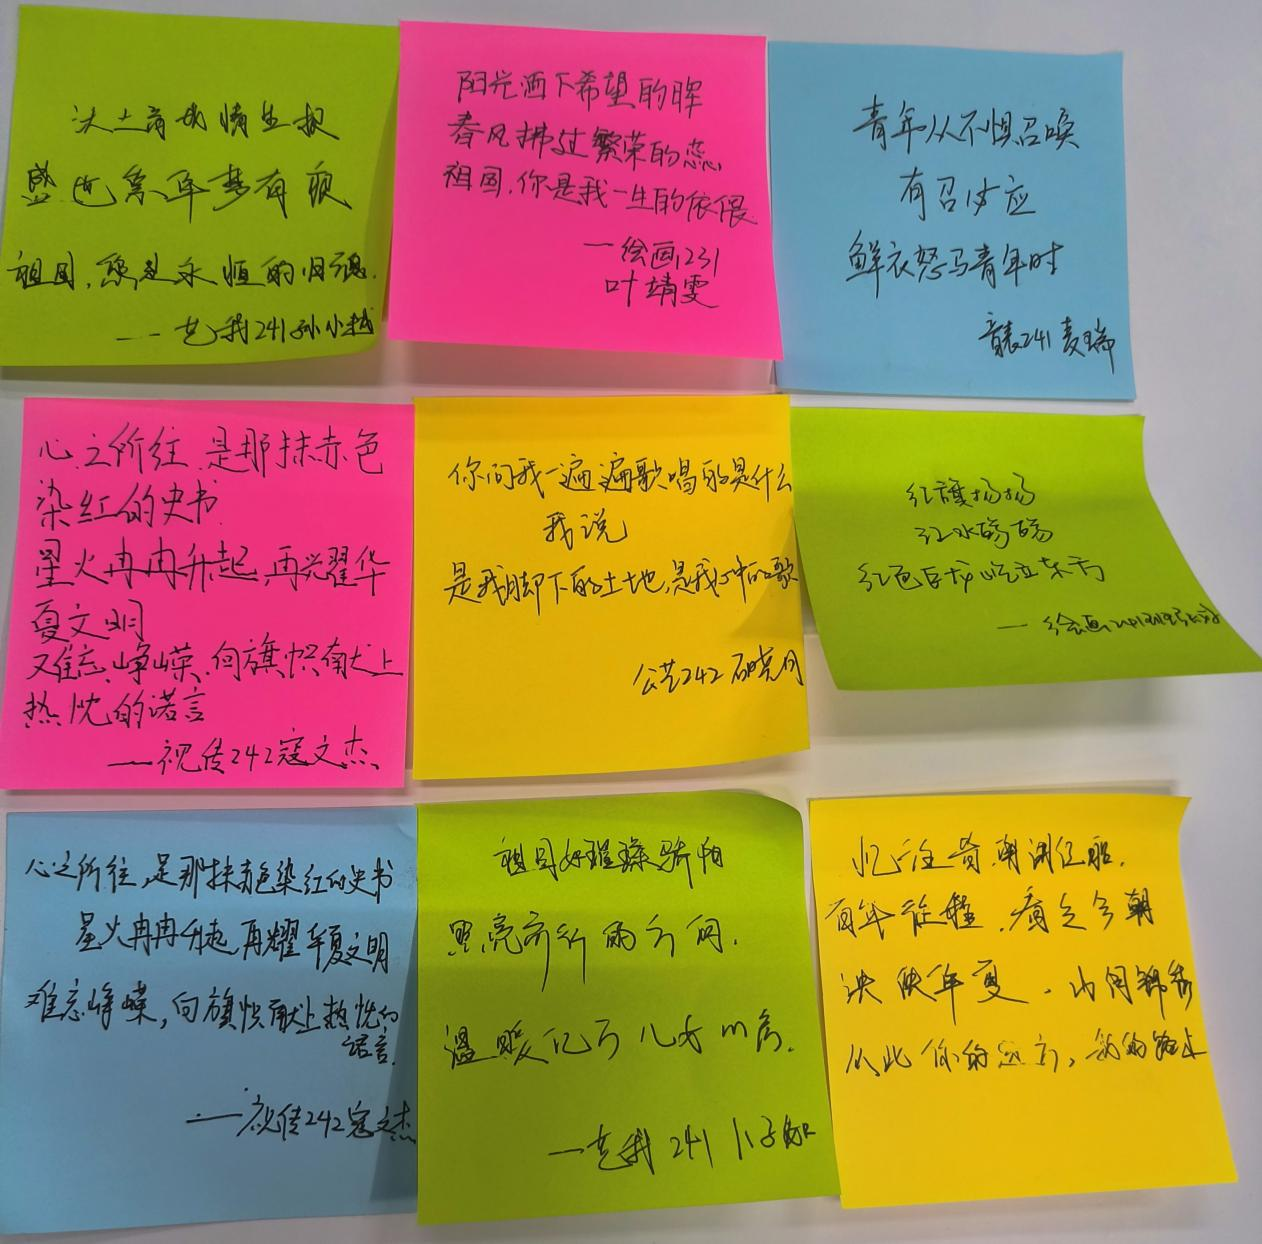 沃土育我情生根
盛世系年梦有痕
祖国,您是永恒的归魂.
——艺我241孙小越
阳光洒下希望的晖
春风拂过繁荣的蕊,
祖国,你是我一生的依偎
——绘画231
叶靖雯
青年从不惧召唤
有召必应
鲜衣怒马青年时
音表241麦瑞
心之所往,是那抹赤色
染红的史书
星火冉冉升起,再兴耀华
夏文明
又难忘峥嵘,向旗帜献上
热忱的诺言
——视传242寇文杰
你问我一遍遍歌唱的是什么
我说
是我脚下的土地,是我心中的歌
公艺242 石晓月
红旗扬扬
江水荡荡
红色巨龙屹立东方
——绘画241班
心之所往,是那抹赤色染红的史书
星火冉冉升起,再耀华夏文明
难忘峥嵘,向旗帜献上热忱的
诺言.
——视传242寇文杰
祖国好璀璨骄阳
照亮前行的方向.
温暖亿万儿女心房.
——艺我 241
忆往昔,南湖红船.
百年征程,奋之今朝
泱泱华夏,山河锦秀
从此你的远方,我的路上